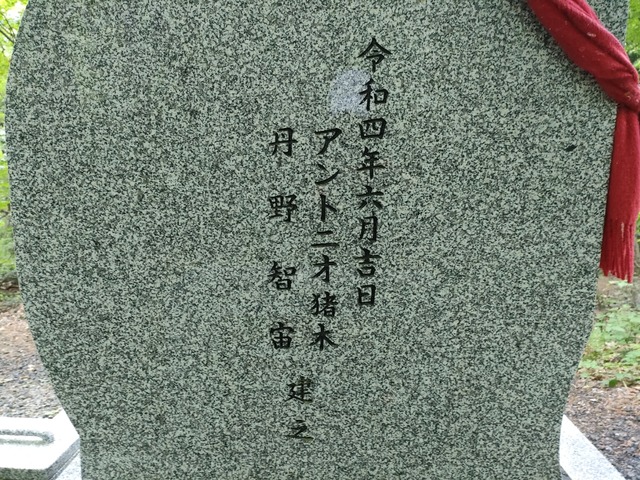 令和四年六月吉日
アントニオ猪木
丹野智宙
建之